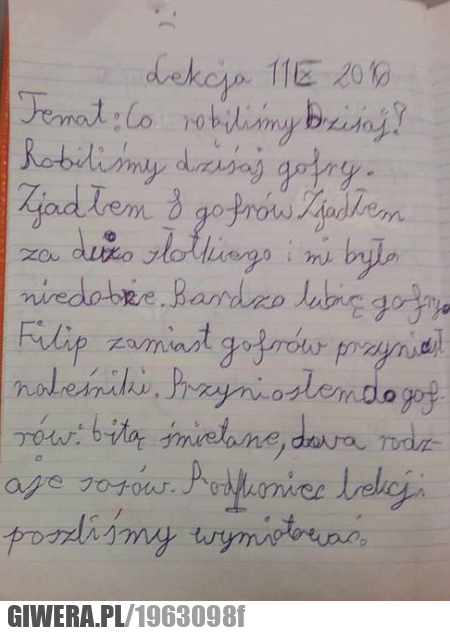 Lekcja 11 E 2010
Temat: Co robiliśmy Dzisaj?
Robiliśmy dzisaj gofry.
Zjadłem 8 gofrów Zjadłem
za dużo słotkiego i mi było
niedobrze. Bardzo lubię gofry.
Filip zamiast gofrów przyniusł
naleśniki. Przyniosłem do gof-
rów: bitą śmietane, dwa rodz-
aje sosów. Pod koniec lekcji
poszliśmy wymiotować.
GIWERA.PL/1963098f